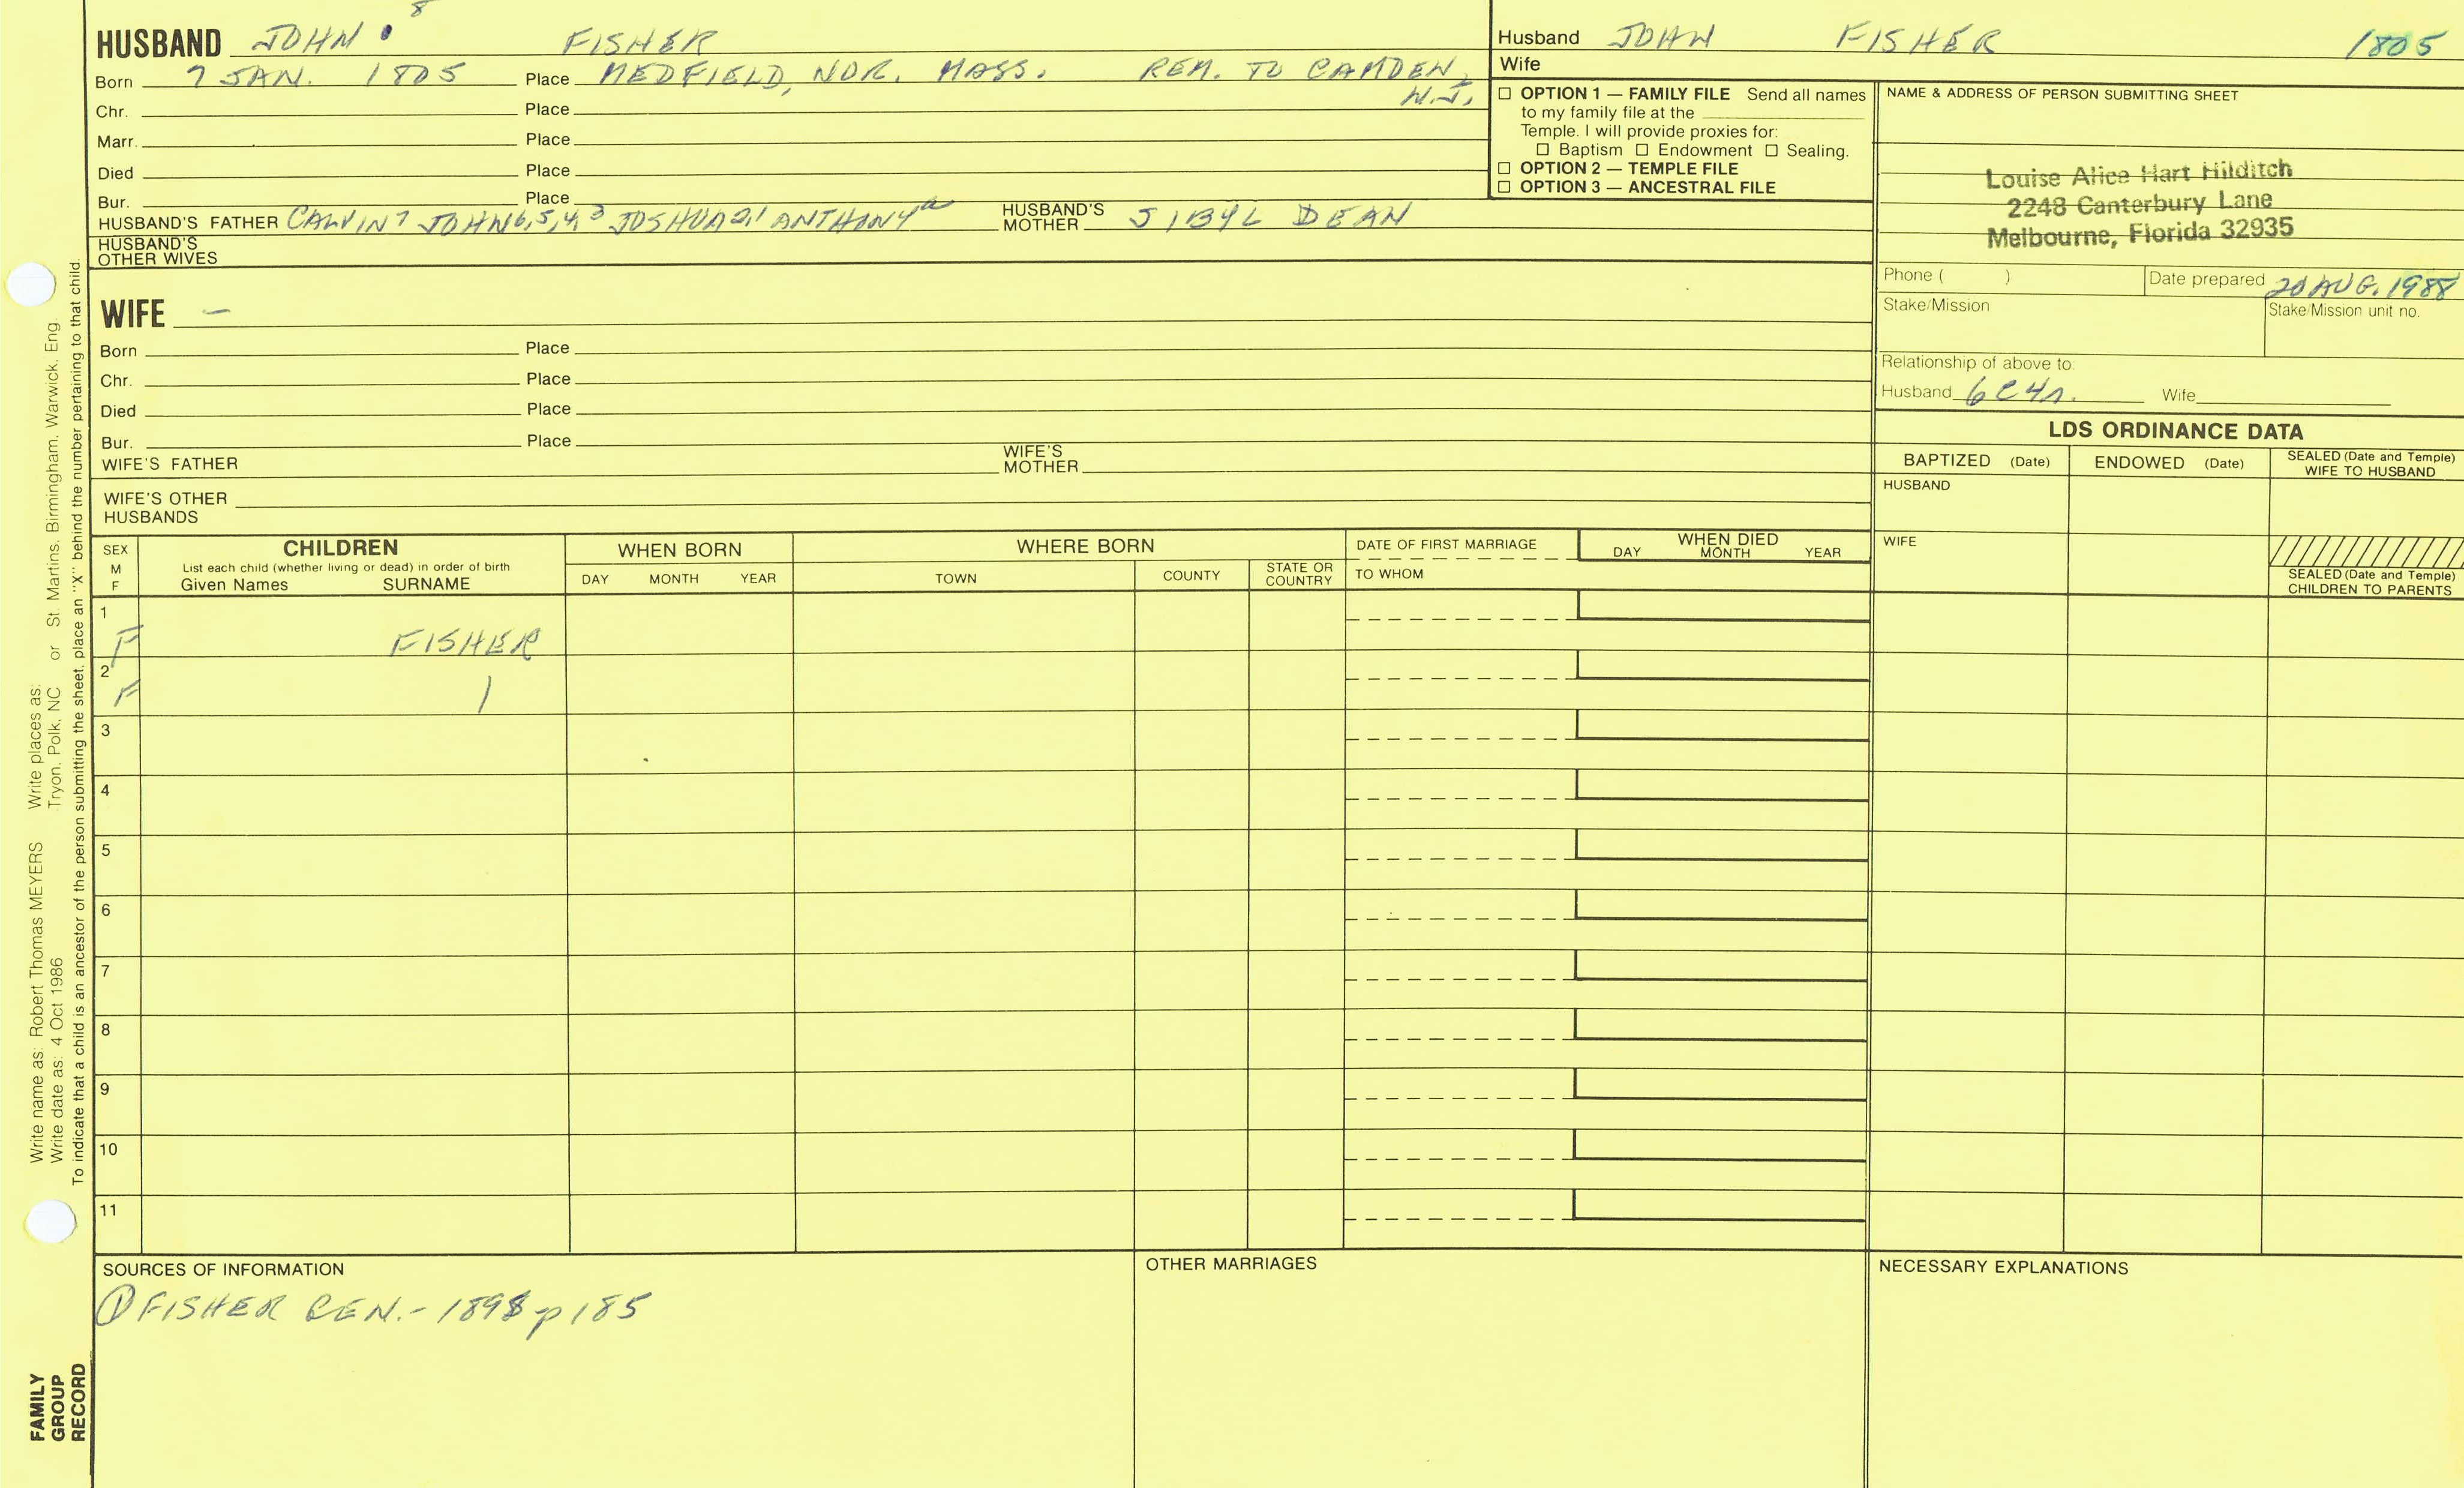 8
HUSBAND JOHN FISHER
Born 7 JAN. 1805 Place MEDFIELD, NOR. MASS. REM. TO CAMDEN, N.J.
Chr. Place
Marr. Place
Died Place
Bur. Place
HUSBAND'S FATHER CALVIN7 JOHN6,5,4,3 JOSHUA2,1 ANTHONYa HUSBAND'S MOTHER SIBYL DEAN
HUSBAND'S OTHER WIVES
Husband JOHN FISHER 1805
Wife
☐ OPTION 1 — FAMILY FILE Send all names
to my family file at the
Temple. I will provide proxies for:
☐ Baptism ☐ Endowment ☐ Sealing.
☐ OPTION 2 — TEMPLE FILE
☐ OPTION 3 — ANCESTRAL FILE
NAME & ADDRESS OF PERSON SUBMITTING SHEET
Louise Alice Hart Hilditch
2248 Canterbury Lane
Melbourne, Florida 32935
Phone ( ) Date prepared 20 AUG. 1988
Stake/Mission Stake/Mission unit no.
Relationship of above to:
Husband 6C4r. Wife
WIFE –
Born Place
Chr. Place
Died Place
Bur. Place
WIFE'S FATHER WIFE'S MOTHER
WIFE'S OTHER HUSBANDS
LDS ORDINANCE DATA
BAPTIZED (Date) ENDOWED (Date) SEALED (Date and Temple) WIFE TO HUSBAND
HUSBAND
WIFE
SEALED (Date and Temple) CHILDREN TO PARENTS
SEX M F
CHILDREN
List each child (whether living or dead) in order of birth
Given Names SURNAME
WHEN BORN
DAY MONTH YEAR
WHERE BORN
TOWN COUNTY STATE OR COUNTRY
DATE OF FIRST MARRIAGE
TO WHOM
WHEN DIED
DAY MONTH YEAR
1
F FISHER
2
F |
3
4
5
6
7
8
9
10
11
SOURCES OF INFORMATION
① FISHER GEN.- 1898 p185
OTHER MARRIAGES
NECESSARY EXPLANATIONS
Write name as: Robert Thomas MEYERS Write places as:
Write date as: 4 Oct 1986 Tryon, Polk, NC or St. Martins, Birmingham, Warwick, Eng.
To indicate that a child is an ancestor of the person submitting the sheet, place an "X" behind the number pertaining to that child.
FAMILY
GROUP
RECORD